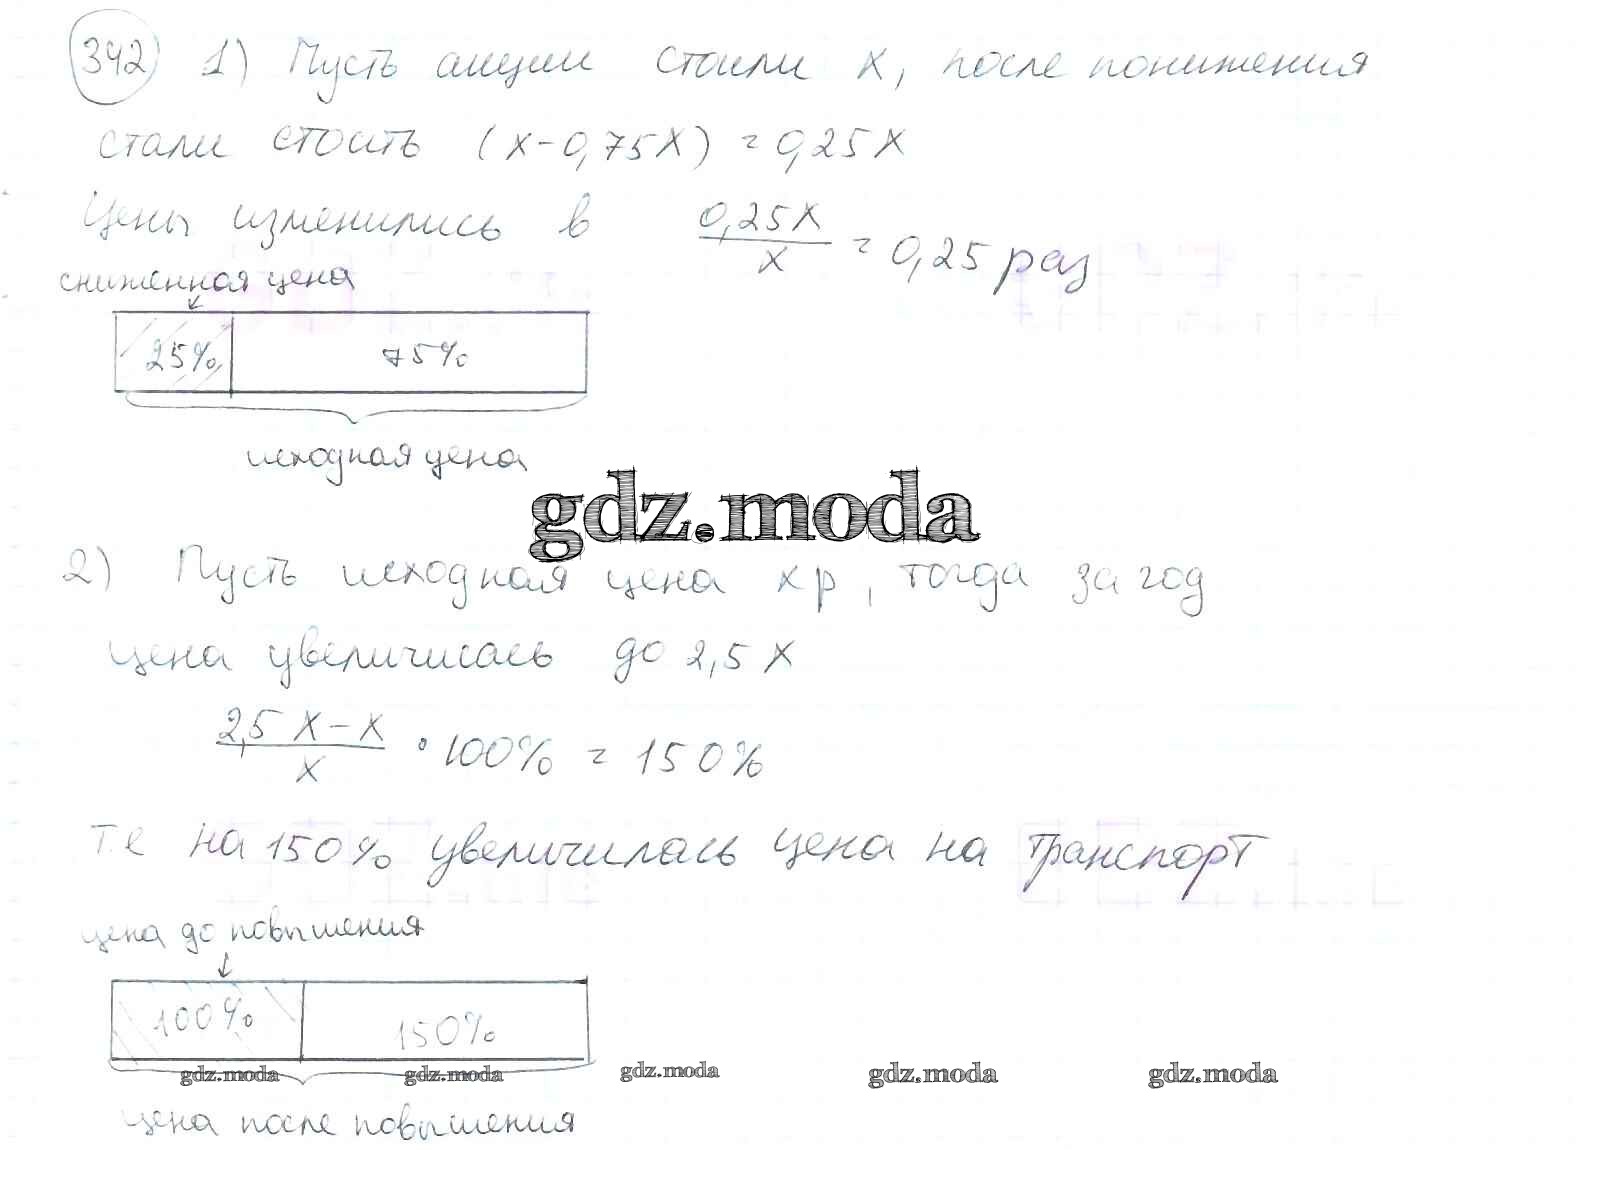 342 1) Пусть акции стоили x, после понижения
стали стоить (x-0,75x) = 0,25x
Цены изменились в 0,25x/x = 0,25 раз
сниженная цена
25% 75%
исходная цена
gdz.moda
2) Пусть исходная цена x р, тогда за год
цена увеличисась до 2,5x
2,5x-x/x · 100% = 150%
т.е на 150% увеличилась цена на транспорт
цена до повышения
100% 150%
gdz.moda gdz.moda gdz.moda gdz.moda gdz.moda
цена после повышения